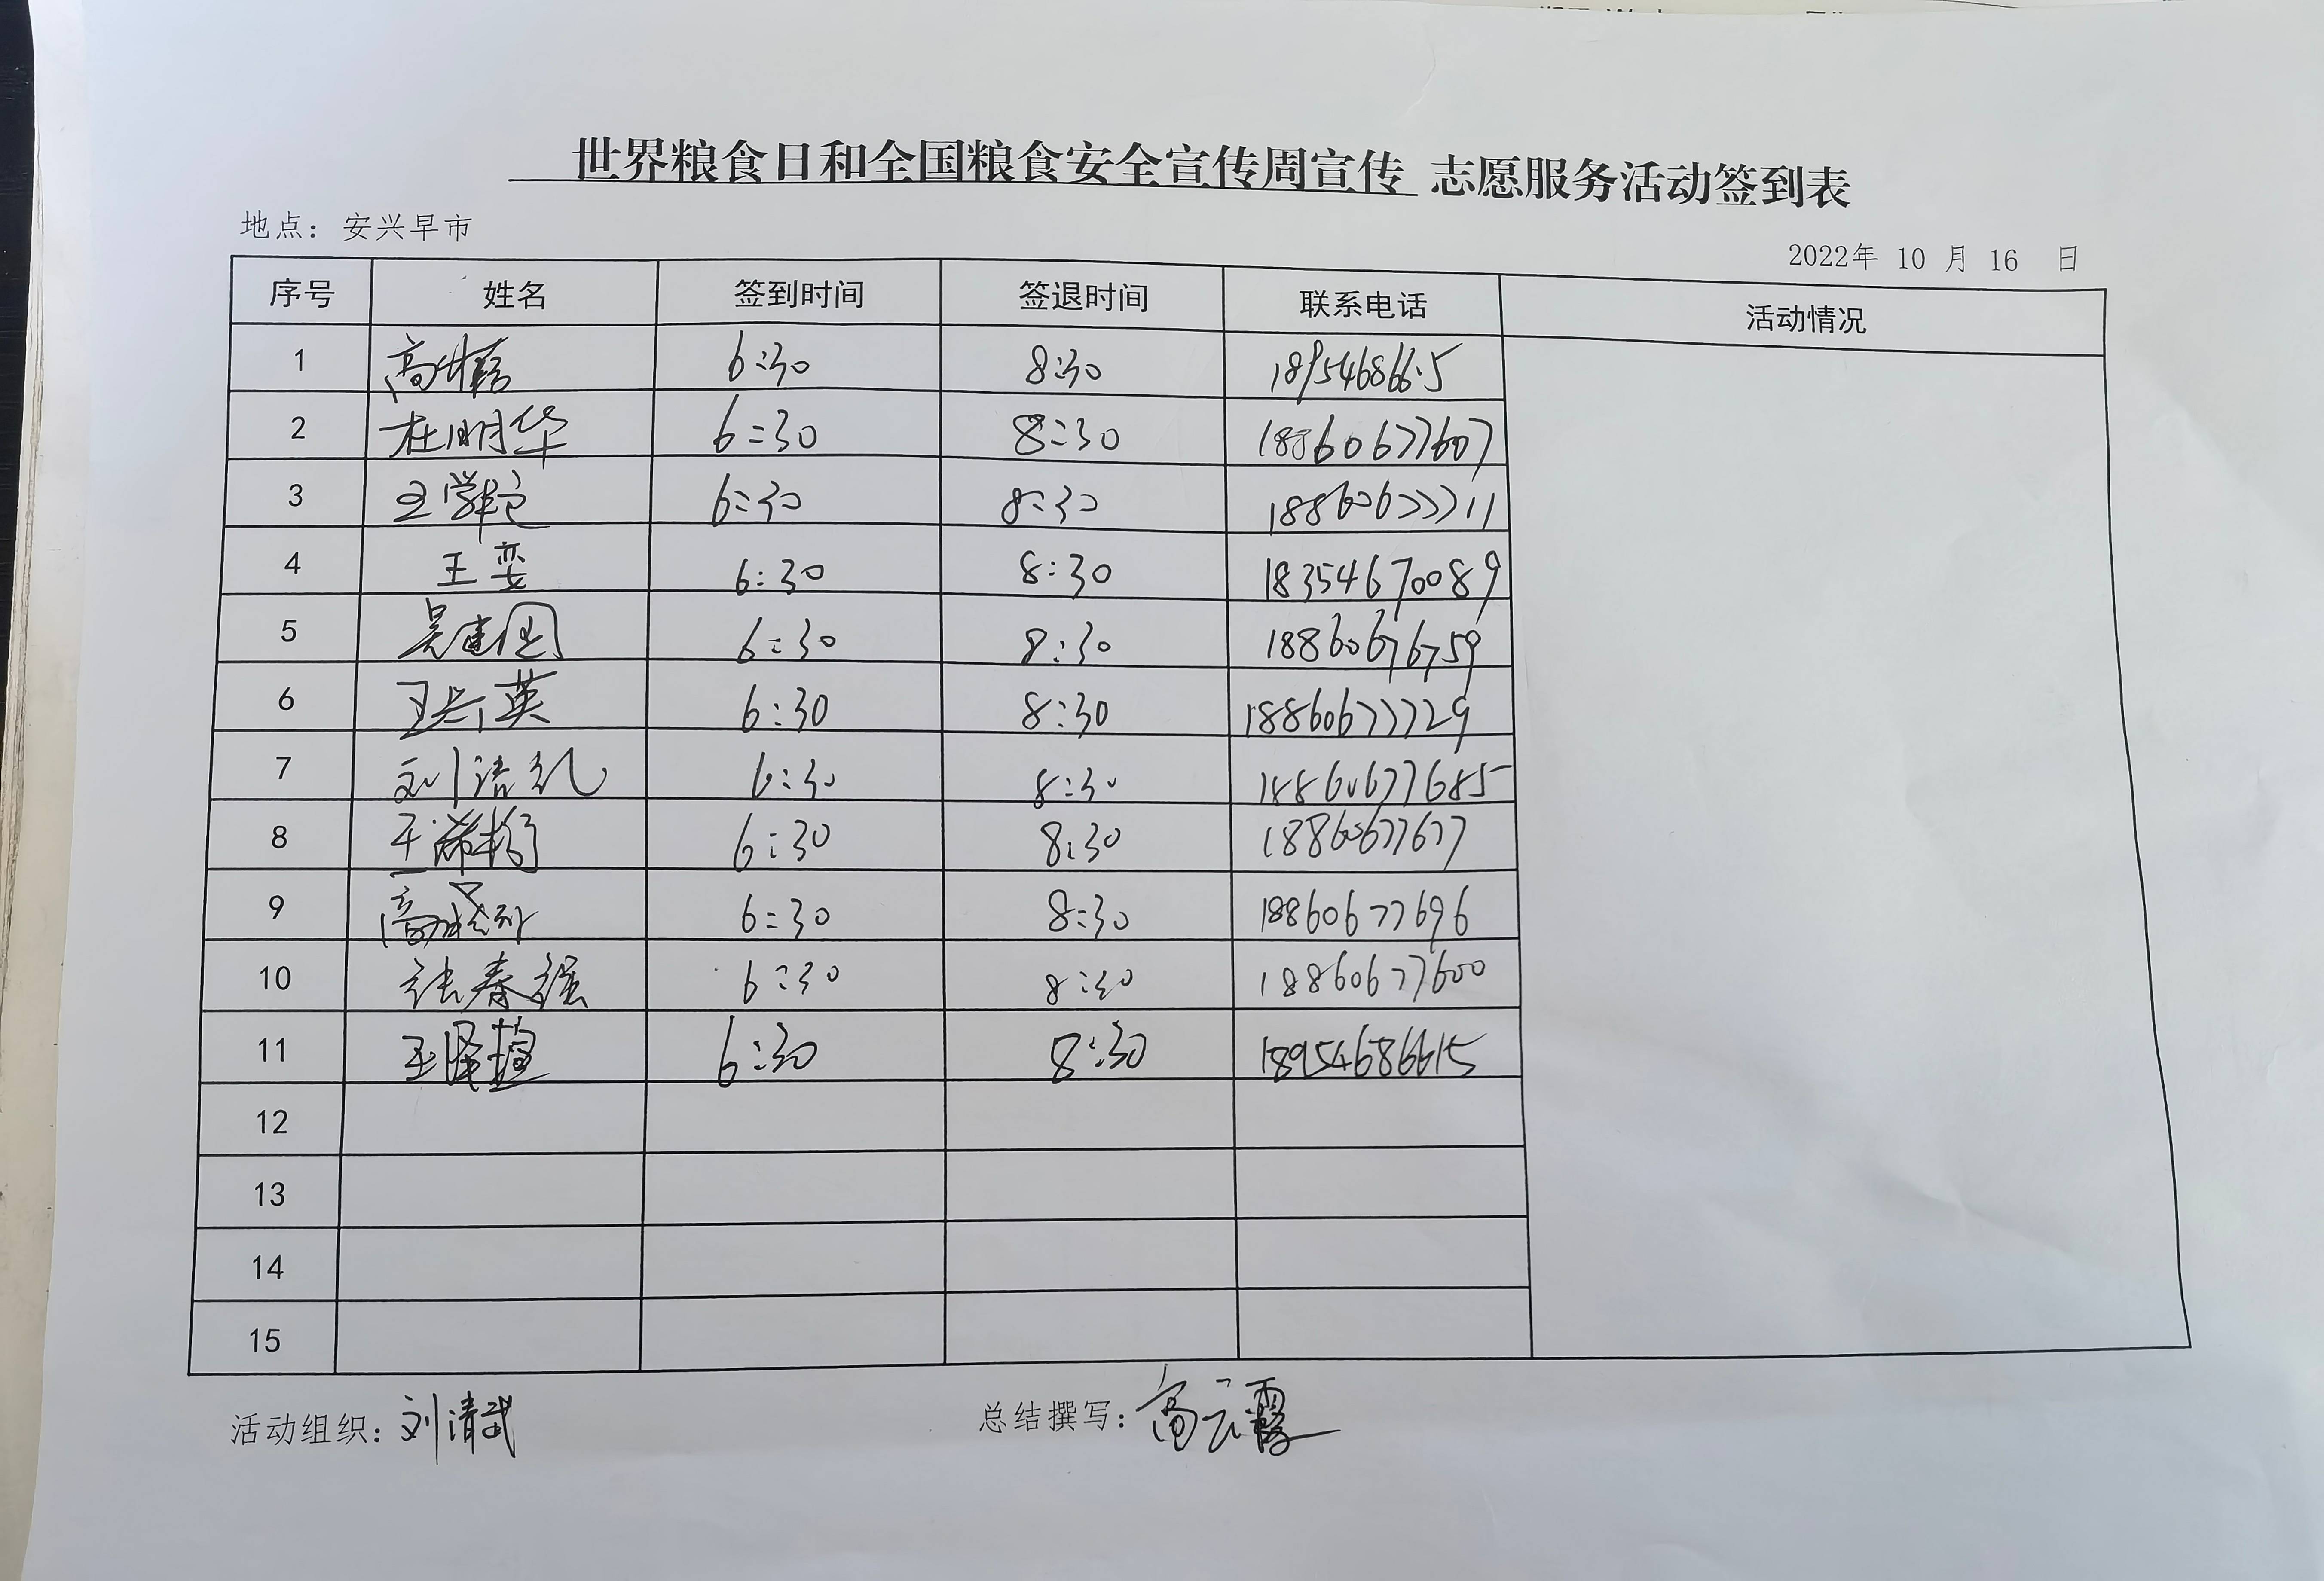 世界粮食日和全国粮食安全宣传周宣传 志愿服务活动签到表
地点：安兴早市
2022年 10 月 16 日
序号 姓名 签到时间 签退时间 联系电话 活动情况
1 6:30 8:30
2 杜明华 6:30 8:30 18860677607
3 6:30 8:30 18860677711
4 王娈 6:30 8:30 18354670089
5 吴建国 6:30 8:30 18860676759
6 王兴英 6:30 8:30 18860677729
7 6:30 8:30 18860677685
8 6:30 8:30 18860677677
9 6:30 8:30 18860677696
10 张春强 6:30 8:30 18860677600
11 6:30 8:30 18954686615
12
13
14
15
活动组织：刘清武 总结撰写：高云霞